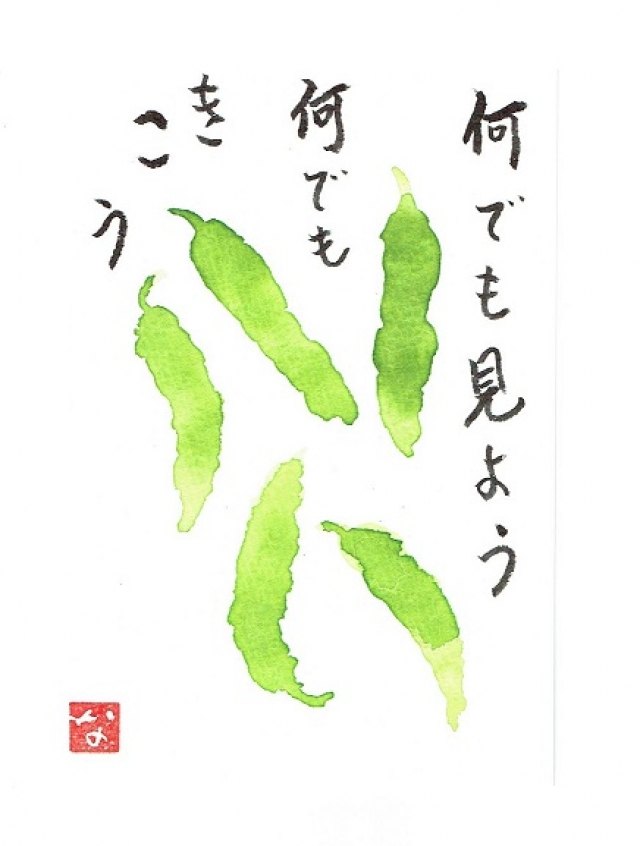 何でも見よう
何でも
きこう
な